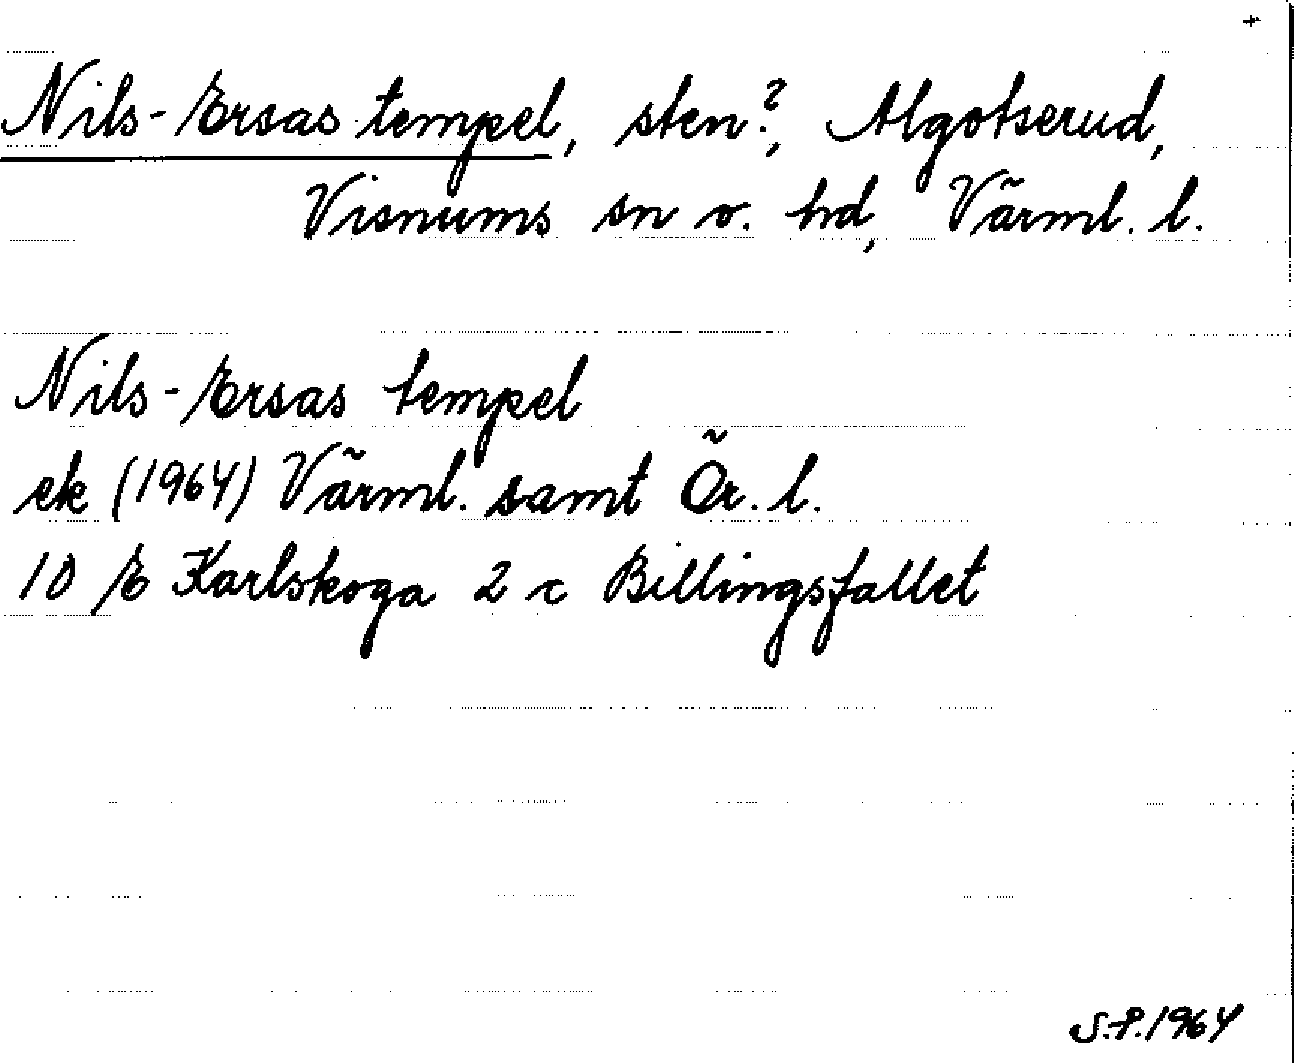 +
Nils-Ersas tempel, sten?, Algotserud,
Visnums sn o. hd, Värml. l.
Nils-Ersas tempel
ek (1964) Värml. samt Ör. l.
10 E Karlskoga 2 c Billingsfallet
S.P. 1964